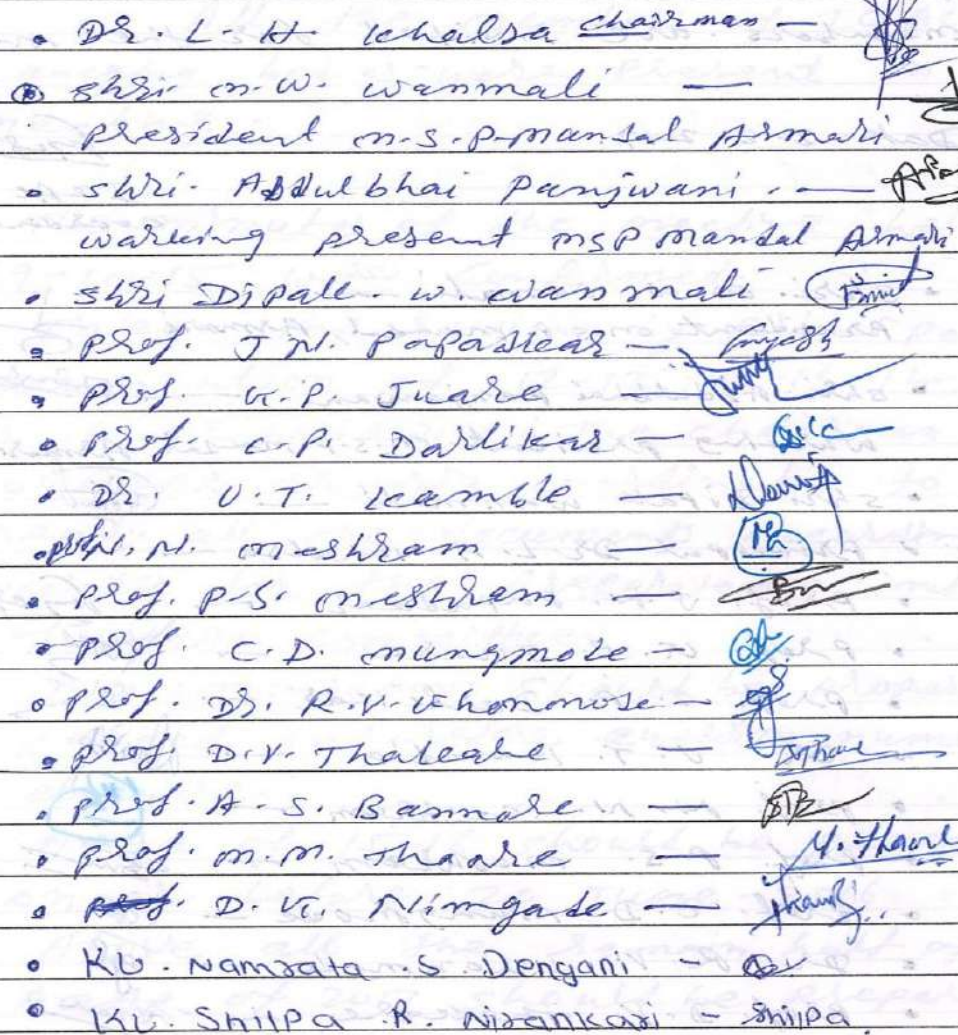 • Dr. L. H. Khalsa chairman —
• Shri M. W. Wanmali —
President M.S.P. Mandal Armori
• Shri. Abdulbhai Panjwani. —
warking present MSP Mandal Armori
• Shri Dipak. W. Wanmali.
• Prof. J N. Papadkar —
• Prof. K. P. Juare —
• Prof. C. P. Darlikar —
• Dr. U. T. Kamble —
• Prof. N. N. Meshram —
• Prof. P. S. Meshram —
• Prof. C. D. Mungmode —
• Prof. Dr. R. V. —
• Prof. D. V. Thakare —
• Prof. A. S. Bannore —
• Prof. M. M. Thaore — M. Thaore
• D. K. Nimgade —
• KU. Namrata S Dengani -
• KU. Shilpa R. Nirankari - Shilpa